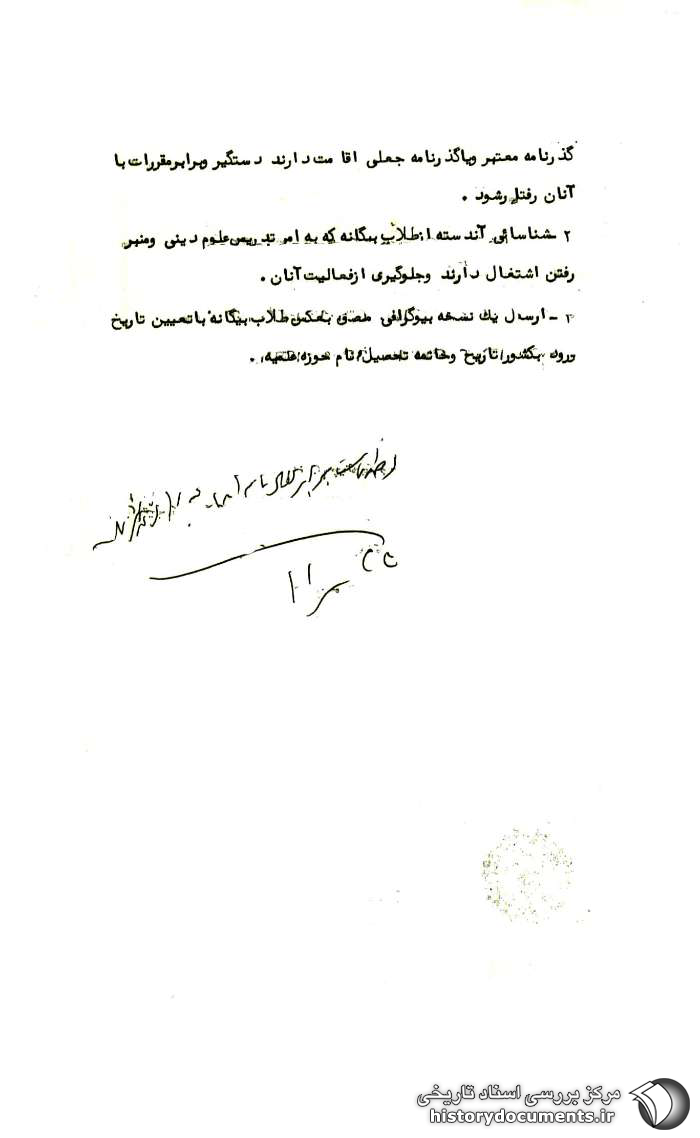 گذرنامه معتبر ویاگذرنامه جعلی اقامت دارند دستگیر وبرابرمقررات با
آنان رفتار شود .
۲ـ شناسائی آندسته ازطلاب بیگانه که به امر تدریس علوم دینی ومنبر
رفتن اشتغال دارند وجلوگیری ازفعالیت آنان .
۳ـ ارسال یك نسخه بیوگرافی ملصق بعکس طلاب بیگانه باتعیین تاریخ
ورود بکشور، تاریخ وخاتمه تحصیل، نام حوزه علمیه .
مرکز بررسی اسناد تاریخی
historydocuments.ir